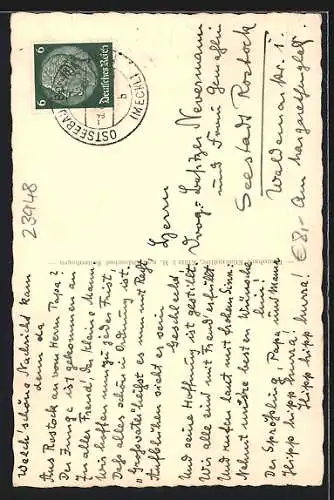 6 Deutsches Reich 6
OSTSEEBAD
(MECKL)
b
23948
Herrn
Drog.-Besitzer Nevermann
und Frau Gemahlin
Seestadt Rostock
Waldemarstr. 1.
Am Margaretenplatz.
€ 8,-
Welch schöne Nachricht kam
denn da
Aus Rostock an vom Herrn Papa?
Der Junge ist gekommen an
In aller Freud', der kleine Mann.
Wir hoffen nun zu jeder Frist,
Daß alles schön in Ordnung ist.
"Großvater" heißt es nun mit Recht
Aufblühen sieht er sein
Geschlecht
Und seine Hoffnung ist gestillt
Wir alle sind mit Freud' erfüllt
Und rufen laut mit frohem Sinn:
Nehmt unsre besten Wünsche
hin!
Der Sprößling, Papa und Mama
Hipp hipp hurra!
Hipp hipp hurra!